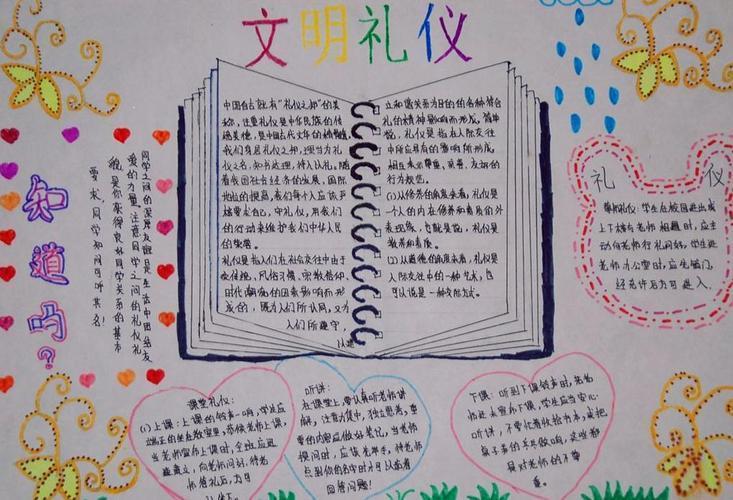 文明礼仪
中国自古就有“礼仪之邦”的美
称，注重礼仪是中华民族的传
统美德，是中国古代文年的精髓
我们身居礼仪之邦，理当为礼
仪之名，知书达理，待人以礼。随
着我国社会经济的发展，国际
地位的提高，我们每个人应该严
格要求自己，守礼仪，用我们
的行动来维护我们中华人民
的荣誉。
礼仪是指人们在社会交往中由于
受传统，风俗习惯，宗教信仰，
时代潮流的因素影响而形
成的，既为人们所认同，又为
人们所遵守，
以建
立和谐关系为目的的各种符合
礼的精神影响而形成。简单
说，礼仪是指在人际交往
中所应具有的
相互表示尊重，亲善，友好的
行为规范。
(1)从修养的角度来看，礼仪是
一个人的内在修养和素质的外
表现现，也就是说，礼仪是
教养和素质。
(2)从道德的角度来看，礼仪是
人际交往中的一种艺术，也
可以说是一种交际方式。
礼仪
尊师礼仪：学生在校园进出或
上下楼与老师相遇时，应主
动向老师行礼问好。学生进
老师办公室时，应先敲门，
经允许后方可进入。
知道吗？
同学之间的深厚友谊是生活中团结友
爱的力量，注意同学之间的礼仪礼
貌是你获得良好同学关系的基本
要求，同学知问可听其名！
课堂礼仪：
(1)上课：上课的铃声一响，学生应
端正的坐在教室里，恭候老师上课，
当老师宣布上课时，全班应迅
速肃立，向老师问好，待老
师答礼后，方可
坐下。
听讲：
在课堂上，要认真听老师讲
解，注意力集中，独立思考，重
要的内容应做好笔记，当老师
提问时，应该先举手，待老师
点到你的名字时才可以站着
回答问题！
下课：听到下课铃声时，若老
师还未宣布下课，学生应当安心
听讲，不要忙着收拾书本，或把
桌子弄的乒乒做响，这些都
是对老师的不尊
重。